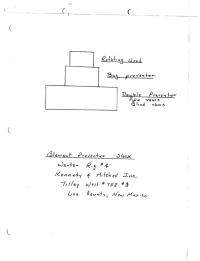 Rotating head
Bag preventer
Double Preventer
Pipe rams
Blind rams
Element Preventer Stack
Warton Rig #4
Kennedy & Mitchell Inc.
Tilley Well #
Lea County, New Mexico